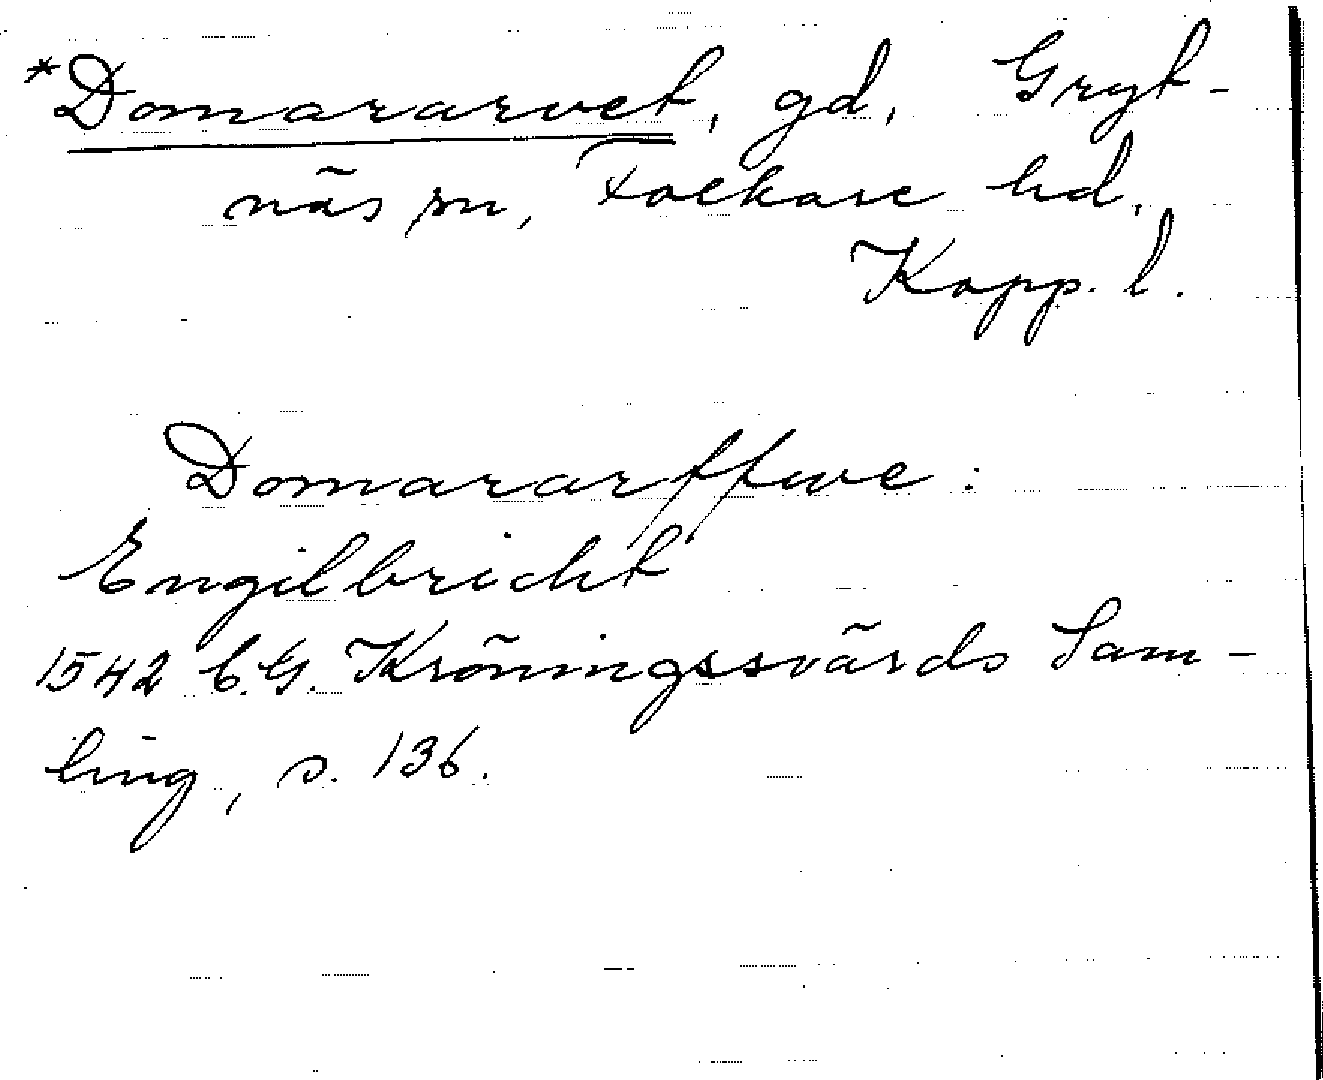 *Domararvet, gd, Gryt-
näs sn, Folkare hd,
Kopp. l.
Domararffwe :
Engilbricht
1542 C.G. Kröningssvärds Sam-
ling, s. 136.